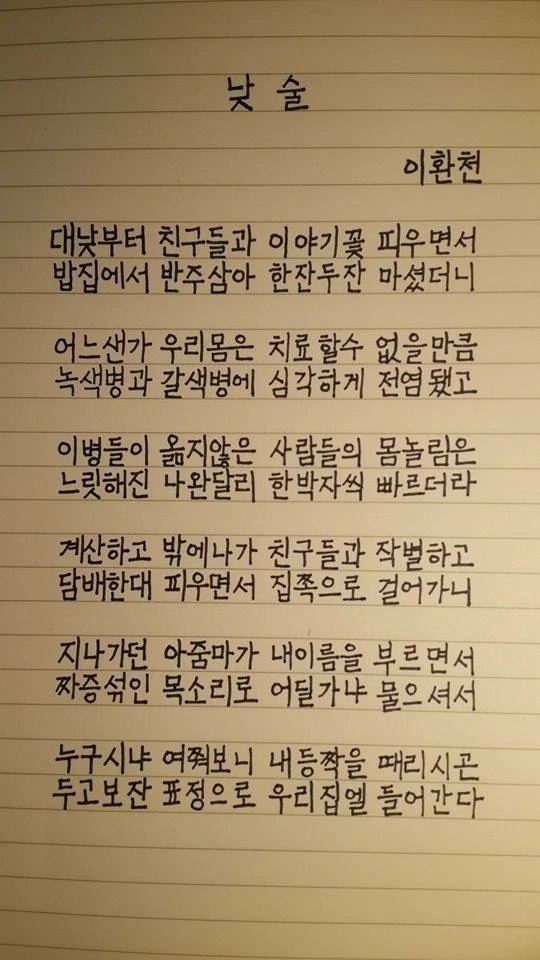 낮 술
이환천
대낮부터 친구들과 이야기꽃 피우면서
밥집에서 반주삼아 한잔두잔 마셨더니
어느샌가 우리몸은 치료할수 없을만큼
녹색병과 갈색병에 심각하게 전염됐고
이병들이 옮지않은 사람들의 몸놀림은
느릿해진 나완달리 한박자씩 빠르더라
계산하고 밖에나가 친구들과 작별하고
담배한대 피우면서 집쪽으로 걸어가니
지나가던 아줌마가 내이름을 부르면서
짜증섞인 목소리로 어딜가냐 물으셔서
누구시냐 여쭤보니 내등짝을 때리시곤
두고보잔 표정으로 우리집엘 들어간다